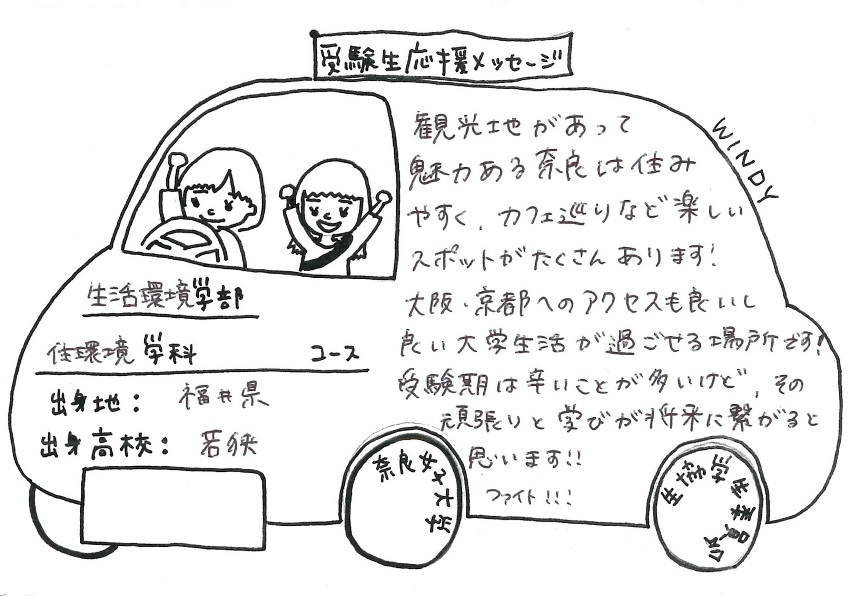 受験生応援メッセージ
WINDY
観光地があって
魅力ある奈良は住み
やすく、カフェ巡りなど楽しい
スポットがたくさんあります!
大阪・京都へのアクセスも良いし
良い大学生活が過ごせる場所です!
受験期は辛いことが多いけど、その
頑張りと学びが将来に繋がると
思います!!
ファイト!!!
生活環境学部
住環境学科 コース
出身地: 福井県
出身高校: 若狭
奈良女子大学
生協学生委員会